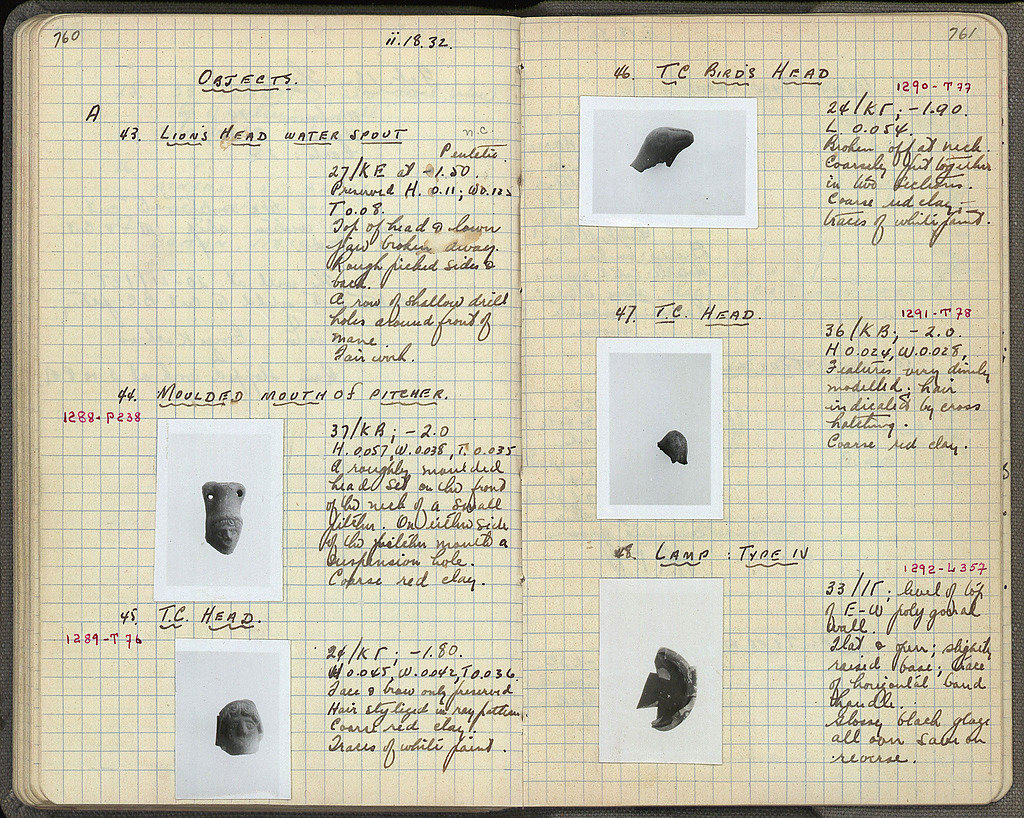 760
ii.18.32.
OBJECTS.
A
43. LION'S HEAD WATER SPOUT
n.c.
Pentelic.
27/KE at -1.50.
Preserved H. 0.11; W 0.125
T 0.08.
Top of head & lower
jaw broken away.
Rough picked sides &
back.
A row of shallow drill
holes around front of
mane.
Fair work.
44. MOULDED MOUTH OF PITCHER.
1288-P238
37/KB; -2.0
H. 0.057, W. 0.038, T. 0.035
A roughly moulded
head set on the front
of the neck of a small
pitcher. On either side
of the pitcher mouth a
suspension hole.
Coarse red clay.
45. T.C. HEAD.
1289-T76
24/KΓ; -1.80.
H 0.045, W. 0.042, T 0.036.
Face & brow only preserved
Hair stylized in ray pattern
Coarse red clay.
Traces of white paint.
761
46. TC BIRD'S HEAD
1290-T77
24/KΓ; -1.90.
L. 0.054.
Broken off at neck.
Coarsely put together
in two sections.
Coarse red clay;
traces of white paint.
47. T.C. HEAD.
1291-T78
36/KB; -2.0.
H 0.024, W. 0.028,
Features very dimly
modelled; hair
indicated by cross
hatching.
Coarse red clay.
48. LAMP: TYPE IV
1292-L357
33/IΓ; level of top
of E-W polygonal
wall.
Flat & open; slightly
raised base; trace
of horizontal band
handle.
Glossy black glaze
all over save on
reverse.